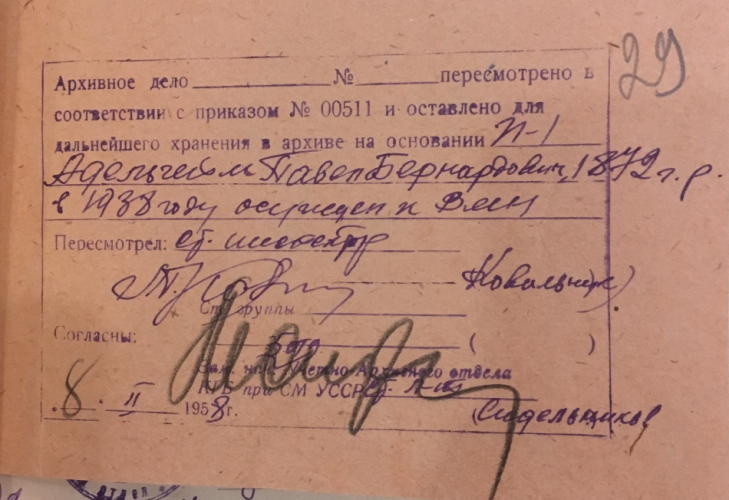 29
Архивное дело № пересмотрено в
соответствии с приказом № 00511 и оставлено для
дальнейшего хранения в архиве на основании П-1
Адельгейм Павел Бернардович, 1872 г. р.
в 1938 году осужден к Вмн
Пересмотрел: ст. инспектор
(Ковальчук)
Ст. группы
Согласны: ( )
Зам. нач. Учетно-Архивного отдела
КГБ при СМ УССР
8. II 1958г.
(Сидельников)